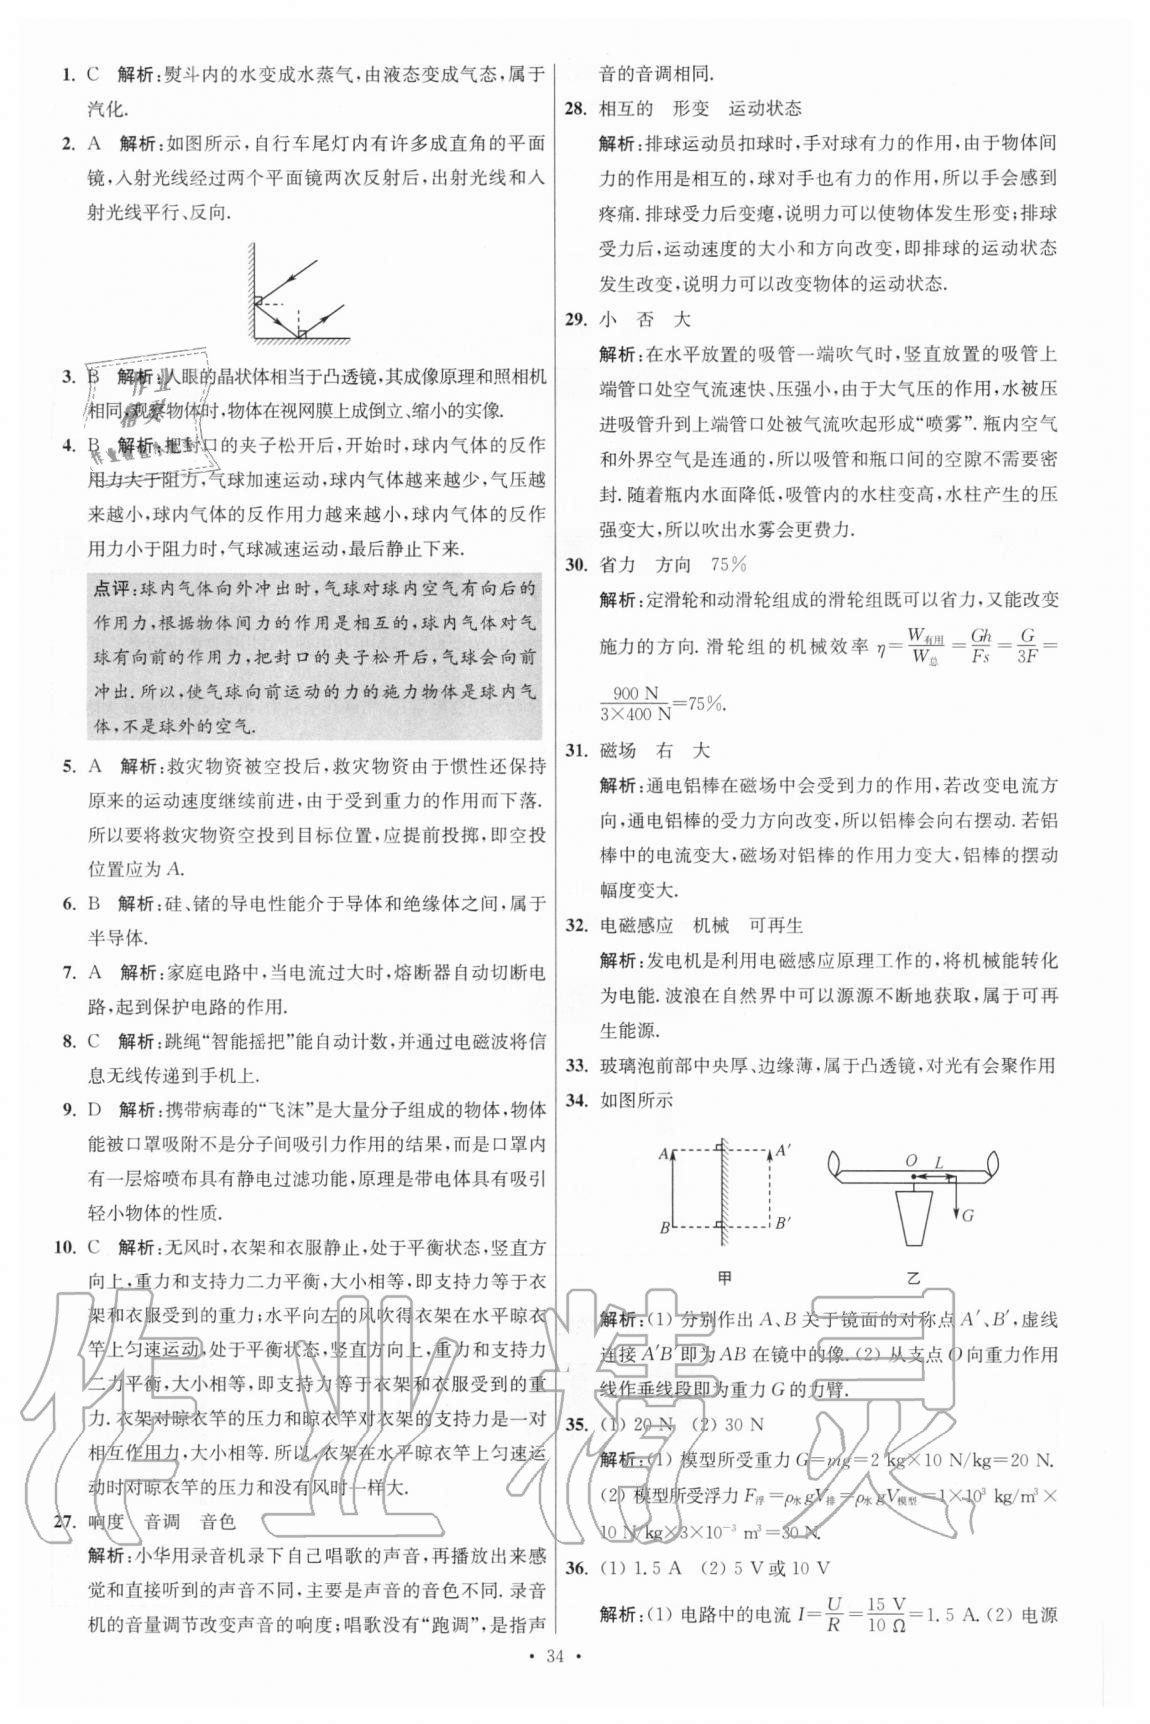 1. C 解析:熨斗内的水变成水蒸气,由液态变成气态,属于
汽化.
2. A 解析:如图所示,自行车尾灯内有许多成直角的平面
镜,入射光线经过两个平面镜两次反射后,出射光线和入
射光线平行、反向.
3. B 解析:人眼的晶状体相当于凸透镜,其成像原理和照相机
相同,观察物体时,物体在视网膜上成倒立、缩小的实像.
4. B 解析:把封口的夹子松开后,开始时,球内气体的反作
用力大于阻力,气球加速运动,球内气体越来越少,气压越
来越小,球内气体的反作用力越来越小,球内气体的反作
用力小于阻力时,气球减速运动,最后静止下来.
点评:球内气体向外冲出时,气球对球内空气有向后的
作用力,根据物体间力的作用是相互的,球内气体对气
球有向前的作用力,把封口的夹子松开后,气球会向前
冲出.所以,使气球向前运动的力的施力物体是球内气
体,不是球外的空气.
5. A 解析:救灾物资被空投后,救灾物资由于惯性还保持
原来的运动速度继续前进,由于受到重力的作用而下落.
所以要将救灾物资空投到目标位置,应提前投掷,即空投
位置应为 A.
6. B 解析:硅、锗的导电性能介于导体和绝缘体之间,属于
半导体.
7. A 解析:家庭电路中,当电流过大时,熔断器自动切断电
路,起到保护电路的作用.
8. C 解析:跳绳“智能摇把”能自动计数,并通过电磁波将信
息无线传递到手机上.
9. D 解析:携带病毒的“飞沫”是大量分子组成的物体,物体
能被口罩吸附不是分子间吸引力作用的结果,而是口罩内
有一层熔喷布具有静电过滤功能,原理是带电体具有吸引
轻小物体的性质.
10. C 解析:无风时,衣架和衣服静止,处于平衡状态,竖直方
向上,重力和支持力二力平衡,大小相等,即支持力等于衣
架和衣服受到的重力;水平向左的风吹得衣架在水平晾衣
竿上匀速运动,处于平衡状态,竖直方向上,重力和支持力
二力平衡,大小相等,即支持力等于衣架和衣服受到的重
力.衣架对晾衣竿的压力和晾衣竿对衣架的支持力是一对
相互作用力,大小相等.所以,衣架在水平晾衣竿上匀速运
动时对晾衣竿的压力和没有风时一样大.
27. 响度 音调 音色
解析:小华用录音机录下自己唱歌的声音,再播放出来感
觉和直接听到的声音不同,主要是声音的音色不同.录音
机的音量调节改变声音的响度;唱歌没有“跑调”,是指声
音的音调相同.
28. 相互的 形变 运动状态
解析:排球运动员扣球时,手对球有力的作用,由于物体间
力的作用是相互的,球对手也有力的作用,所以手会感到
疼痛.排球受力后变瘪,说明力可以使物体发生形变;排球
受力后,运动速度的大小和方向改变,即排球的运动状态
发生改变,说明力可以改变物体的运动状态.
29. 小 否 大
解析:在水平放置的吸管一端吹气时,竖直放置的吸管上
端管口处空气流速快、压强小,由于大气压的作用,水被压
进吸管升到上端管口处被气流吹起形成“喷雾”.瓶内空气
和外界空气是连通的,所以吸管和瓶口间的空隙不需要密
封.随着瓶内水面降低,吸管内的水柱变高,水柱产生的压
强变大,所以吹出水雾会更费力.
30. 省力 方向 75%
解析:定滑轮和动滑轮组成的滑轮组既可以省力,又能改变
施力的方向.滑轮组的机械效率 η=W有用/W总=Gh/Fs=G/3F=
900 N/3×400 N=75%.
31. 磁场 右 大
解析:通电铝棒在磁场中会受到力的作用,若改变电流方
向,通电铝棒的受力方向改变,所以铝棒会向右摆动.若铝
棒中的电流变大,磁场对铝棒的作用力变大,铝棒的摆动
幅度变大.
32. 电磁感应 机械 可再生
解析:发电机是利用电磁感应原理工作的,将机械能转化
为电能.波浪在自然界中可以源源不断地获取,属于可再
生能源.
33. 玻璃泡前部中央厚、边缘薄,属于凸透镜,对光有会聚作用
34. 如图所示
A A′ O L
B B′ G
甲 乙
解析:(1) 分别作出 A、B 关于镜面的对称点 A′、B′,虚线
连接 A′B′即为 AB 在镜中的像.(2) 从支点 O 向重力作用
线作垂线段即为重力 G 的力臂.
35. (1) 20 N (2) 30 N
解析:(1) 模型所受重力 G=mg=2 kg×10 N/kg=20 N.
(2) 模型所受浮力 F浮=ρ水gV排=ρ水gV模型=1×10³ kg/m³×
10 N/kg×3×10⁻³ m³=30 N.
36. (1) 1.5 A (2) 5 V或10 V
解析:(1) 电路中的电流 I=U/R=15 V/10 Ω=1.5 A.(2) 电源
• 34 •
作业精灵